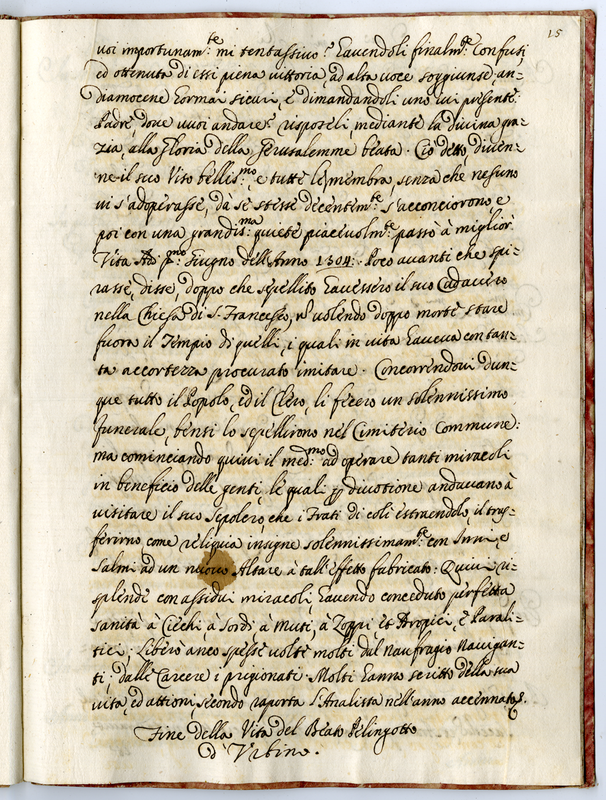 15
voi importunam:te mi tentassivo? Havendoli finalm:te Confusi,
ed ottenuta di essi piena vittoria, ad alta voce soggiunse an=
diamocene hormai sicuri, e dimandandoli uno ivi presente
Padre, dove vuoi andare? risposeli mediante la divina gra=
zia, alla Gloria della Gerusalemme beata. Ciò detto, diven=
ne il suo Viso bellis:mo, e tutte le membra, senza che nesuno
vi s'adoperasse, da sè stesse decentem:te s'acconciorono, e
poi con una grandis:ma quiete piacevolm:te passò à miglior
Vita Ad p:mo Giugno dell'Anno 1304. Poco avanti che spi=
rasse, disse, doppo che sepellito havessero il suo Cadavero
nella Chiesa di S. Francesco, volendo doppo morte stare
fuora il Tempio di quelli, i quali in vita haveva con tan=
ta accortezza procurato imitare. Concorrendovi dun=
que tutto il Popolo, ed il Clero, li fecero un solennissimo
funerale, bensi lo sepellirono nel Cimiterio Commune:
ma cominciando quivi il med:mo ad operare tanti miracoli
in beneficio delle genti, le quali divotione andavano à
visitare il suo Sepolcro, che i Frati di coli estraendolo, il tras=
ferirno come reliquia insigne solennissimam:te con Inni, e
Salmi ad un nuovo Altare à tall'effetto fabricato: Quivi ri=
splende con assidui miracoli, havendo conceduto perfetta
sanità à Ciechi, à Sordi, à Muti, à Zoppi, et Hropici, è Parali=
tici; Liberò anco spesse volte molti dal Naufragio Navigan=
ti, dalle Carcere i prigionati. Molti hanno scritto della sua
vita, ed attioni, secondo raporta l'Analista nell'anno accennato.
Fine della Vita del Beato Pelingotto
d'Vrbino.